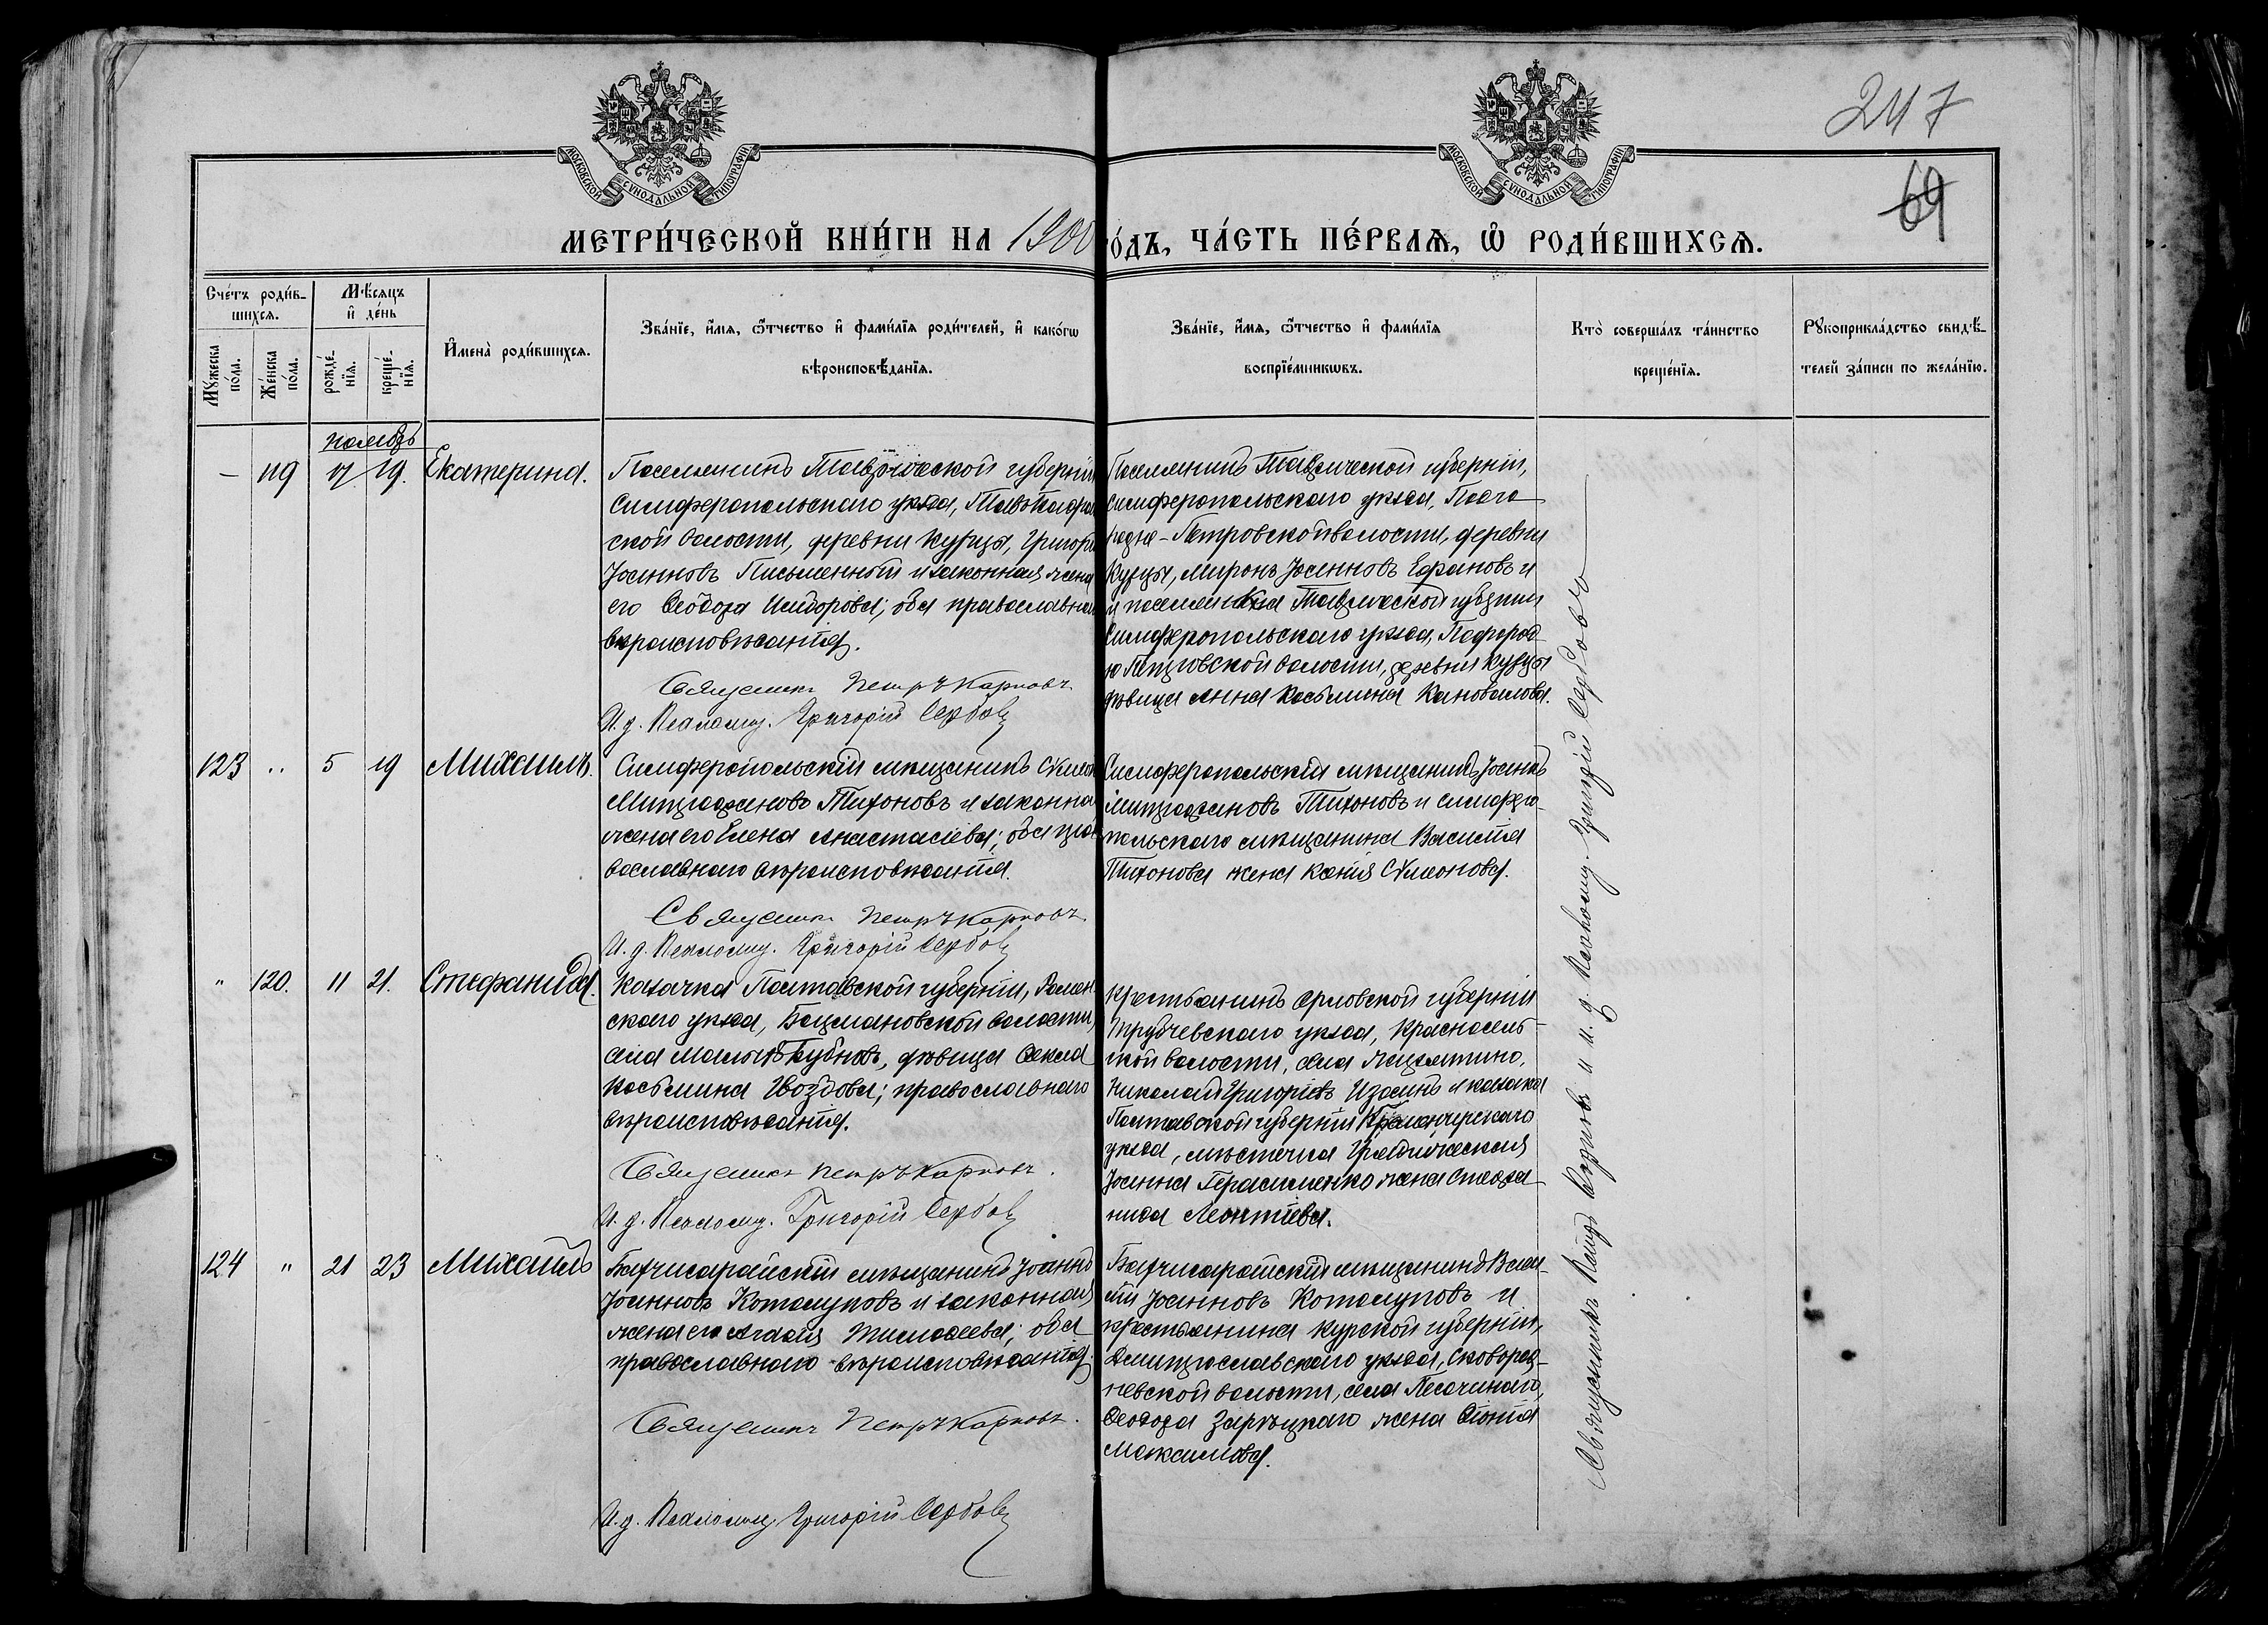 247
69
МОСКОВСКОЙ СУНОДАЛЬНОЙ ТИПОГРАФІИ
МОСКОВСКОЙ СУНОДАЛЬНОЙ ТИПОГРАФІИ
МЕТРИ́ЧЕСКОЙ КНИ́ГИ НА 1900
о́дъ, ЧА́СТЬ ПЕ́РВАѦ, Ѡ҆ РОДИ́ВШИХСѦ.
Сче́тъ роди́в-
шихсѧ.
Мꙋ́жеска
по́ла.
Же́нска
по́ла.
Мѣ́сѧцъ
и҆ де́нь
рожде́-
нїѧ.
креще́-
нїѧ.
И҆мена̀ роди́вшихсѧ.
Зва́нїе, и҆́мѧ, ѻ҆́тчество и҆ фами́лїѧ роди́телей, и҆ како́гѡ
вѣроисповѣ́данїѧ.
Зва́нїе, и҆́мѧ, ѻ҆́тчество и҆ фами́лїѧ
воспрїе́мникѡвъ.
Кто̀ соверша́лъ та́инство
креще́нїѧ.
Рꙋкоприкла́дство свидѣ́-
телей за́писи по жела́нїю.
ноябрь
— 119 17 19. Екатерина.
Поселянинъ Таврической губерніи
Симферопольскаго уѣзда,
ской волости, деревни Курцы, Григорій
Іоанновъ Письменный и законная жена
его Ѳеодора Исидорова; оба православнаго
вѣроисповѣданія.
Священникъ Петръ Карповъ.
И. д. Псаломщ. Григорій Сербовъ
Поселянинъ Таврической губерніи,
Симферопольскаго уѣзда, Подго
родне-Петровской волости, деревни
Курцы, Миронъ Іоанновъ Ефановъ и
и поселянка Таврической губерніи
Симферопольскаго уѣзда, Подгород-
не Петровской волости, деревни Курцы
дѣвица Анна Косьмина Коновалова.
123 " 5 19 Михаилъ.
Симферопольскій мѣщанинъ Сѵмеонъ
Митрофановъ Тихоновъ и законная
жена его Елена Анастасіева; оба пра-
вославнаго вѣроисповѣданія.
Священникъ Петръ Карповъ.
И. д. Псаломщ. Григорій Сербовъ
Симферопольскій мѣщанинъ Іоаннъ
Митрофановъ Тихоновъ и симферо-
польскаго мѣщанина Василія
Тихонова жена Ксенія Сѵмеонова.
" 120. 11 21. Стефанида.
Казачка Полтавской губерніи, Ромен-
скаго уѣзда, Бацмановской волости,
села Малыхъ Бубновъ, дѣвица Ѳекла
Косьмина Гвоздова; православнаго
вѣроисповѣданія.
Священникъ Петръ Карповъ.
И. д. Псаломщ. Григорій Сербовъ
Крестьянинъ Орловской губерніи
Трубчевскаго уѣзда, Красносель-
ской волости, села
Николай Григоріевъ и казака
Полтавской губерніи Кременчугскаго
уѣзда, мѣстечка Градижеска
Іоанна Герасименко жена Стефа-
нида Леонтіева.
124 " 21 23 Михаилъ
Бахчисарайскій мѣщанинъ Іоаннъ
Іоанновъ Котолуповъ и законная
жена его Агафія Тимоѳеева; оба
православнаго вѣроисповѣданія.
Священникъ Петръ Карповъ.
И. д. Псаломщ. Григорій Сербовъ
Бахчисарайскій мѣщанинъ Васи-
лій Іоанновъ Котолуповъ и
крестьянина Курской губерніи,
Дмитріевскаго уѣзда, Сковород-
невской волости, села Песочнаго,
Ѳеодора Зарѣцкаго жена Ѳіонія
Максимова.
Священникъ Петръ Карповъ и и. д. Псаломщ. Григорій Сербовъ